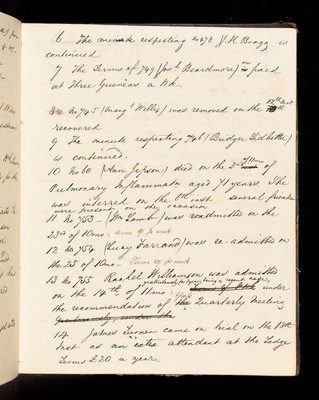 6 The minute respecting No 678 J. H. Bragg is
continued
7 The Terms of 749 (Jos h Beardmore) is fixed
at Three Guineas a Wk.
8 No 745 (Marg t Willis) was removed on the 12th Inst
recovered
9 The minute respecting 746 (Bridget Ledbetter)
is continued.
10 No 60 (Ann Jepson) died on the 2nd of 11mo of
Pulmonary Inflammation aged 71 years. She
was interred on the 6th inst several friends
were present on the occasion
11 No 753 - (Wm Lamb) was readmitted on the
23rd of 10mo -
12 No 754 (Lucy Farrand) was re-admitted on
the 25 of 10mo - Terms 15/ per week
13 No 755 Rachel Williamson was admitted
gratuitously for 1 year being a recent case
on the 14th of 11mo under
the recommendation of York Quarterly Meeting
Gratuitously, under the
14. James Turner came on trial on the 18th
Inst as an extra attendant at the Lodge
Terms £20 a year.